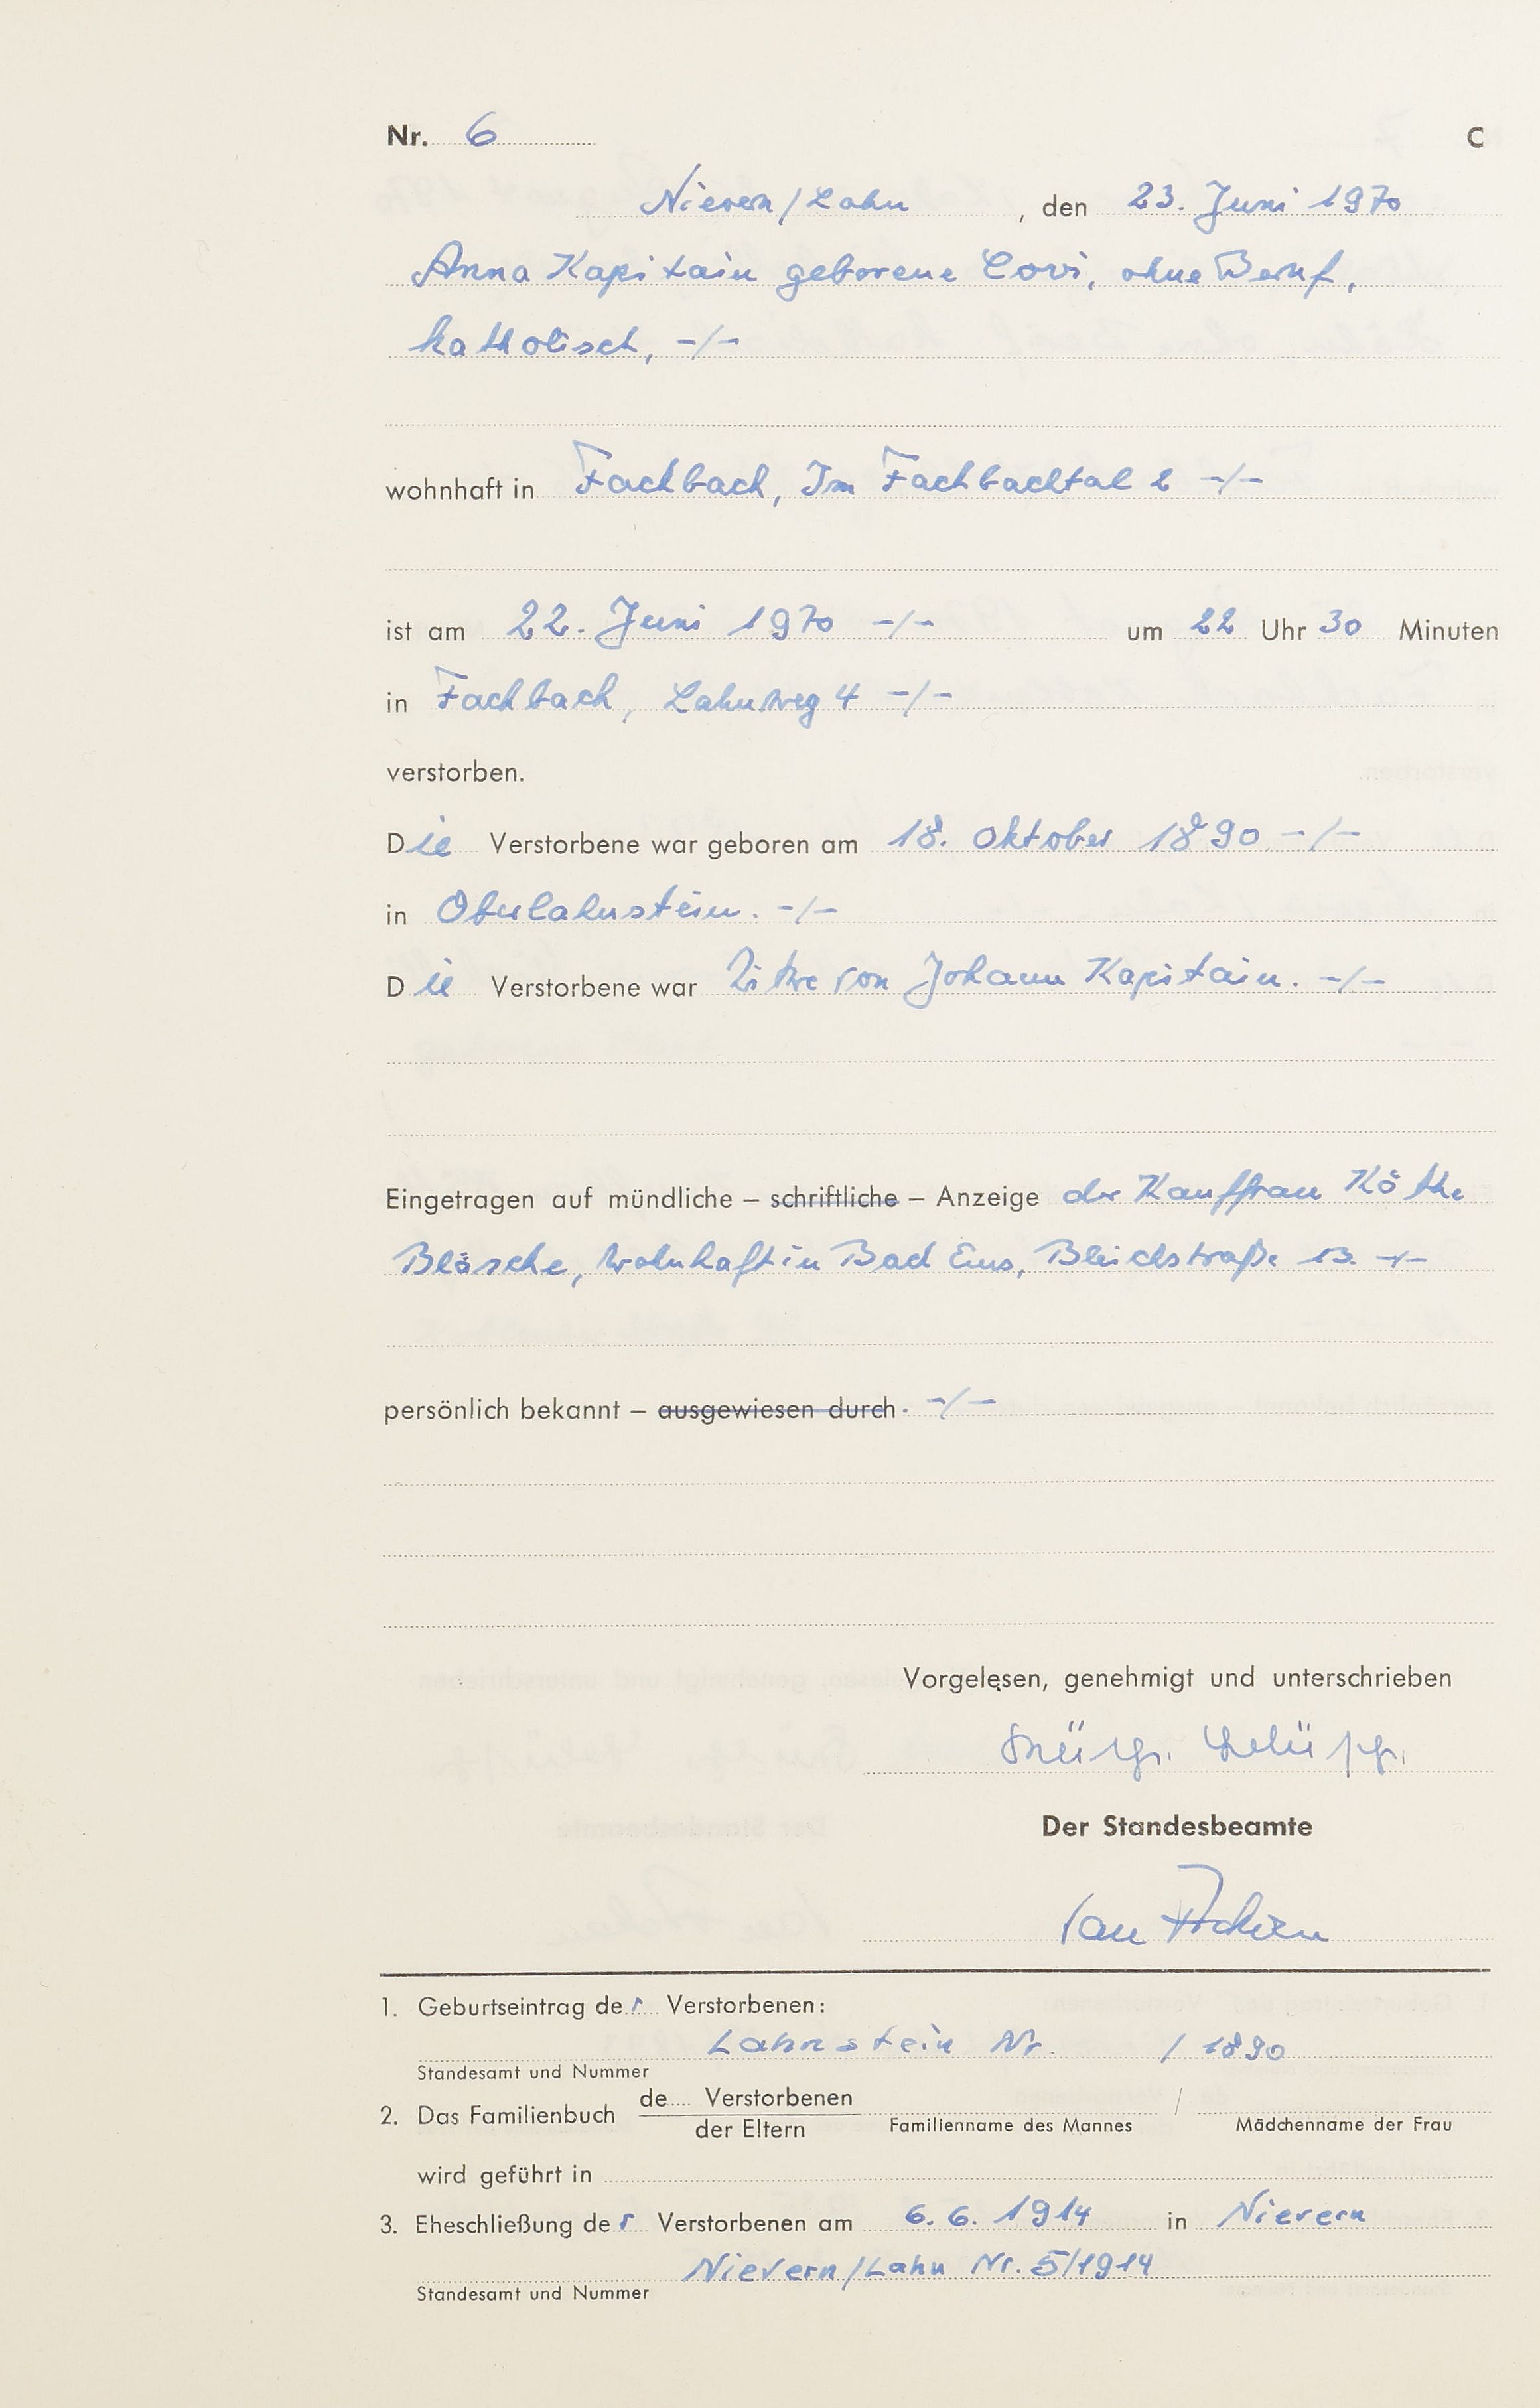 Nr. 6 C
Nievern/Lahn, den 23. Juni 1970
Anna Kapitain geborene Cori, ohne Beruf,
katholisch, -/-
wohnhaft in Fachbach, Im Fachbachtal 2 -/-
ist am 22. Juni 1970 -/- um 22 Uhr 30 Minuten
in Fachbach, Lahnweg 4 -/-
verstorben.
Die Verstorbene war geboren am 18. Oktober 1890 -/-
in Oberlahnstein. -/-
Die Verstorbene war Witwe von Johann Kapitain. -/-
Eingetragen auf mündliche – schriftliche – Anzeige der Kauffrau Käthe
Bläsche, wohnhaft in Bad Ems, Bleichstraße 13. -/-
persönlich bekannt – ausgewiesen durch. -/-
Vorgelesen, genehmigt und unterschrieben
Der Standesbeamte
1. Geburtseintrag der Verstorbenen:
Lahnstein Nr. / 1890
Standesamt und Nummer
2. Das Familienbuch de Verstorbenen /
der Eltern Familienname des Mannes Mädchenname der Frau
wird geführt in
3. Eheschließung der Verstorbenen am 6. 6. 1914 in Nievern
Nievern/Lahn Nr. 5/1914
Standesamt und Nummer